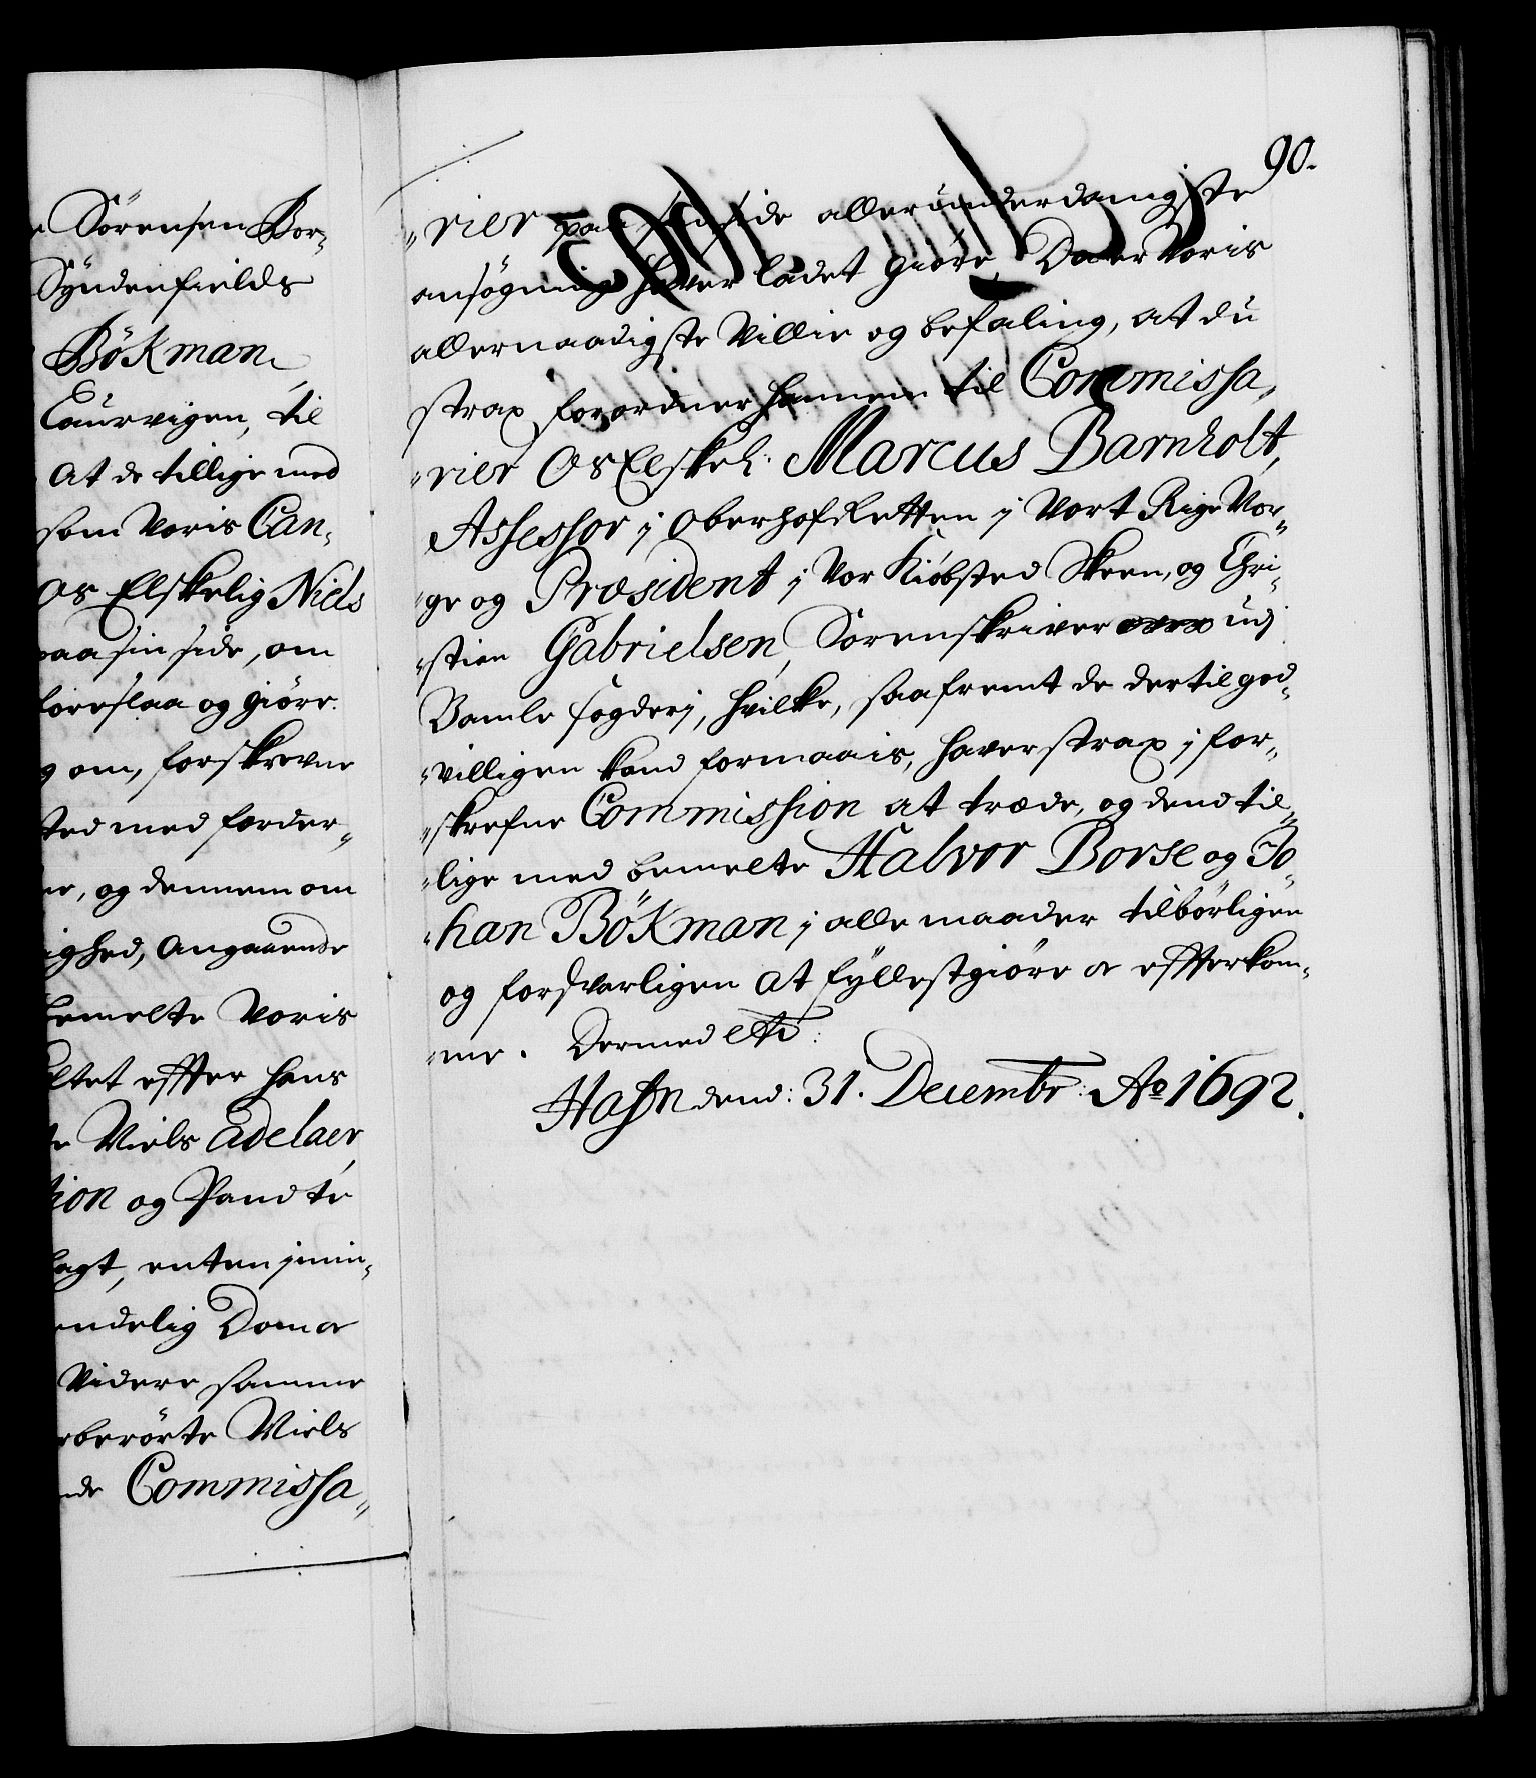 Sörensen Bor-
Syndenfields
Bökman
Laurvigen, til
At de tillige med
som Voris Can-
Os Elskelig Niels
paa sin side, om
foreslaa og giöre
om, forskrevne
med forder-
og dennem om
Angaaende
bemelte Voris
effter hans
Niels Adelaer
og Pandte
lagt, enten j min-
endelig Dom og
Videre samme
berörte Niels
Commissa-
90.
rier paa sin side allerunderdanigste
ansögning hafver ladet giöre, Da er Voris
allernaadigste Villie og befaling, at du
strax forordner hannem til Commissa-
rier Os Elskel: Marcus Barnholt,
Assessor j OberhofRetten j Vort Rige Nor-
ge og Præsident j Vor Kiöbsted Skeen, og Chri-
stien Gabrielsen, Sorenskriver udj
Bamle fogderj, hvilke, saafremt de dertil god-
villigen kand formaais, hafver strax j for-
skrefne Commission at træde, og dend til-
lige med bemelte Halvor Borse og Jo-
han Bökman j alle maader tilbörligen
og forsvarligen at fyllestgiöre og effterkom-
me. Dermed etc:
Hafn dend: 31. Decembr: Ao 1692.